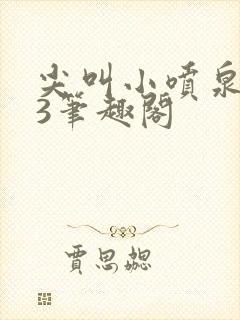 尖叫小喷泉
3笔趣阁
贾思勰